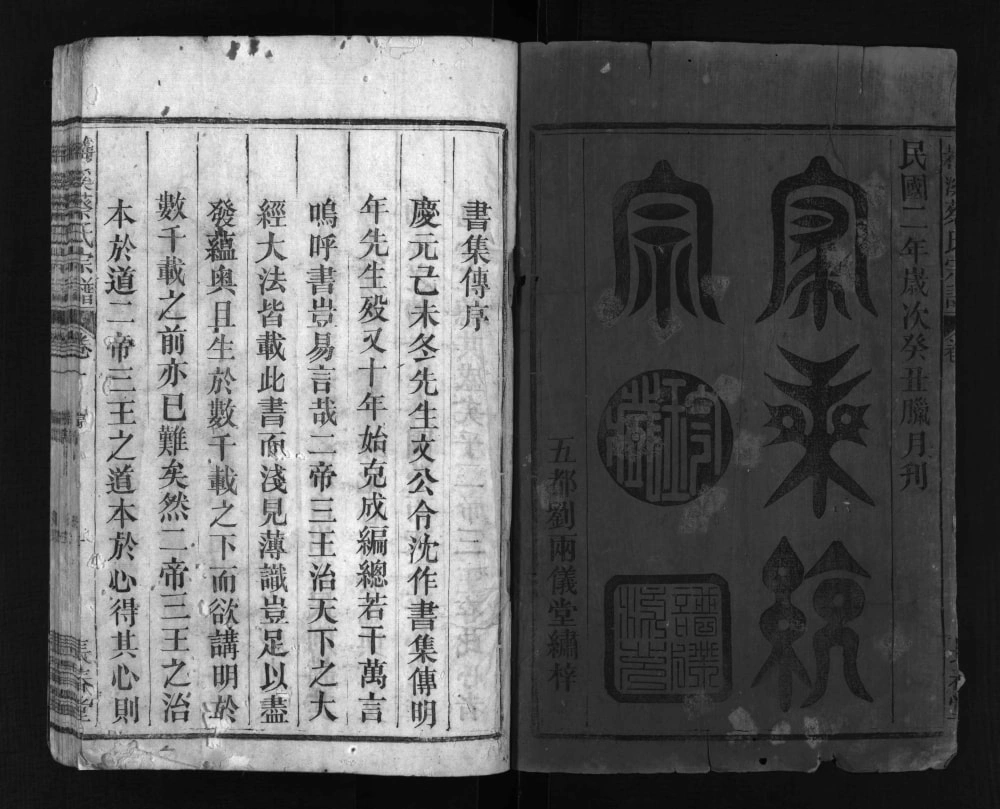 民國二年歲次癸丑臘月刋
家乘
宗
五都劉兩儀堂繡梓
書集傳序
慶元己未冬先生文公令沈作書集傳明
年先生歿又十年始克成編總若干萬言
嗚呼書豈易言哉二帝三王治天下之大
經大法皆載此書而淺見薄識豈足以盡
發蘊奧且生於數千載之下而欲講明於
數千載之前亦已難矣然二帝三王之治
本於道二帝三王之道本於心得其心則
溪蔡氏宗譜 卷一
長春堂